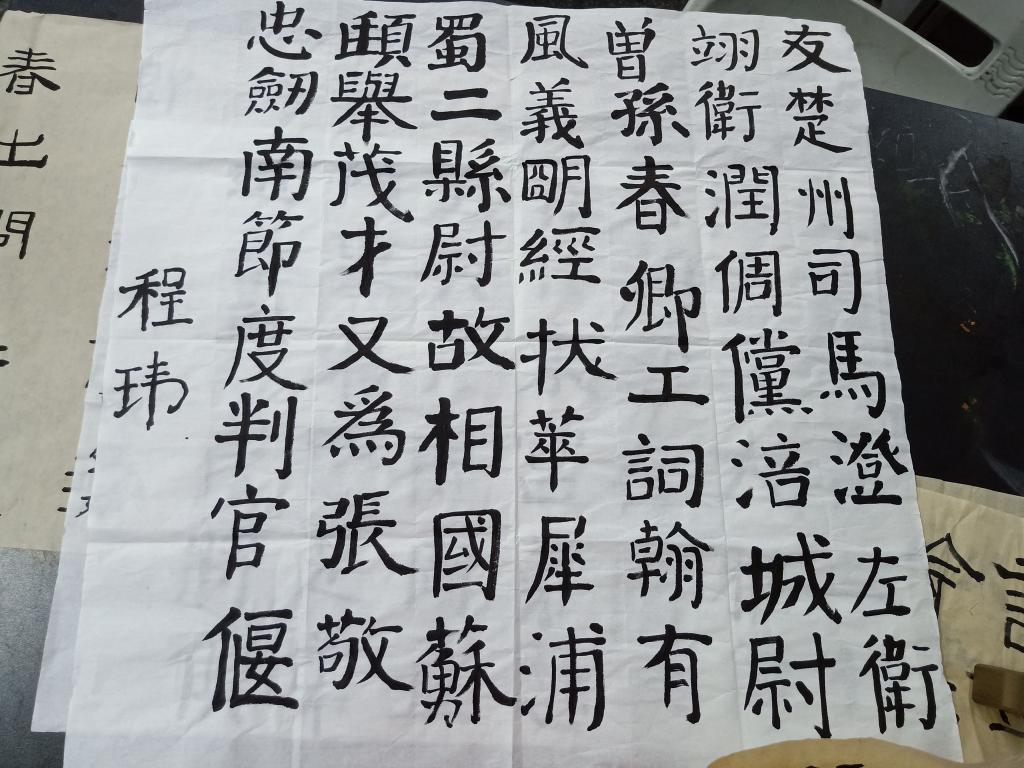 友楚州司馬澄左衛
翊衛潤倜儻涪城尉
曾孫春卿工詞翰有
風義明經拔萃犀浦
蜀二縣尉故相國蘇
頲舉茂才又為張敬
忠劒南節度判官偃
程玮
春土問